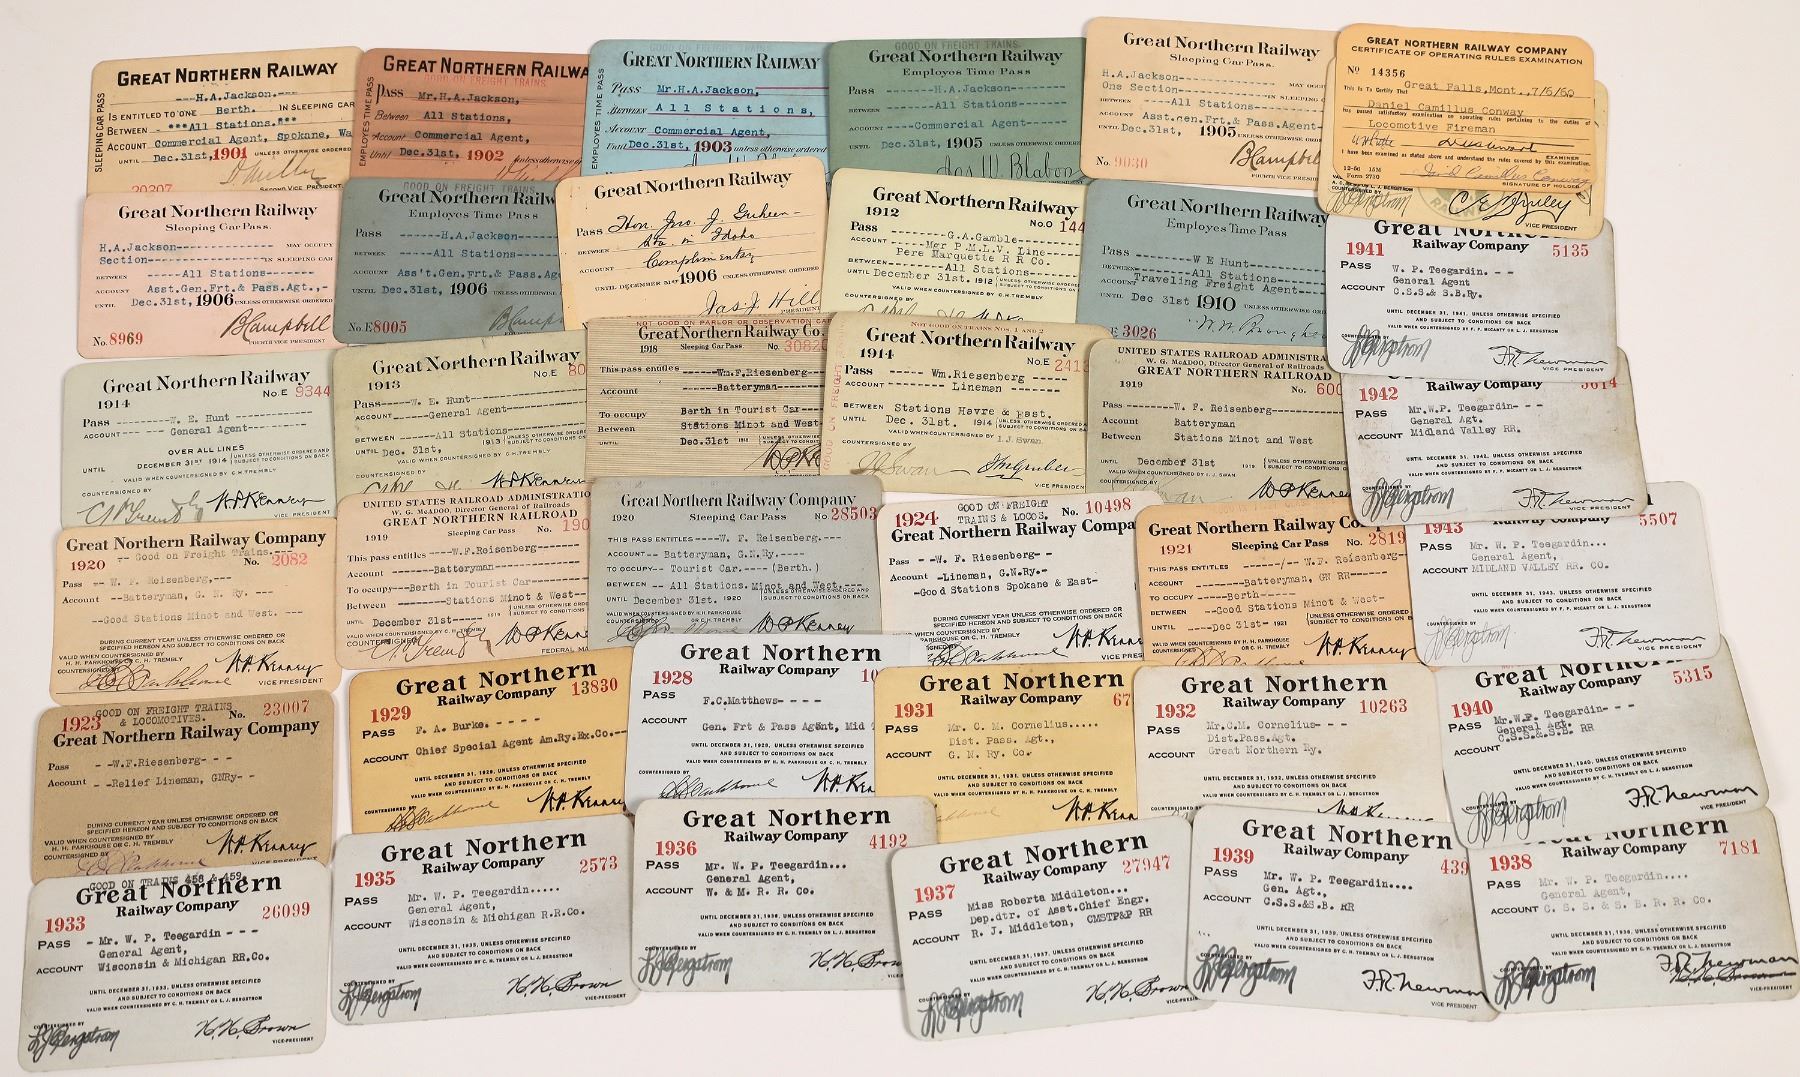 GREAT NORTHERN RAILWAY
SLEEPING CAR PASS
---H.A.Jackson.---
IS ENTITLED TO ONE Berth. IN SLEEPING CAR
BETWEEN - ***All Stations.***
ACCOUNT Commercial Agent, Spokane, Wa
UNTIL Dec.31st, 1901 UNLESS OTHERWISE ORDERED
20307
SECOND VICE PRESIDENT
GREAT NORTHERN RAILWA
GOOD ON FREIGHT TRAINS.
EMPLOYES TIME PASS
Pass Mr.H.A.Jackson,
Between All Stations,
Account Commercial Agent,
Until Dec.31st, 1902
GOOD ON FREIGHT TRAINS
GREAT NORTHERN RAILWAY
EMPLOYES TIME PASS
Pass Mr.H.A.Jackson,
BETWEEN All Stations,
ACCOUNT Commercial Agent,
Until Dec.31st, 1903 unless otherwise ordered
GOOD ON FREIGHT TRAINS.
Great Northern Railway
Employes Time Pass
Pass ----H.A.Jackson-----
BETWEEN ----All Stations----
ACCOUNT ----Commercial Agent----
UNTIL Dec.31st, 1905 UNLESS OTHERWISE
Jas W. Blabon
Great Northern Railway
Sleeping Car Pass.
H.A.Jackson----- MAY OCCUPY
One Section------ IN SLEEPING C
BETWEEN ----All Stations----
ACCOUNT Asst.Gen.Frt.& Pass.Agent-
UNTIL Dec.31st, 1905 UNLESS OTHERWISE ORDERED
No. 9030
BCampbell
FOURTH VICE PRESIDENT
GREAT NORTHERN RAILWAY COMPANY
CERTIFICATE OF OPERATING RULES EXAMINATION
No 14356
Great Falls, Mont., 7/6/60
This Is To Certify That
Daniel Camillus Conway
has passed satisfactory examination on operating rules pertaining to the duties of
Locomotive Fireman
EXAMINER
I have been examined as stated above and understand the rules covered by this examination.
12-60 15M
Form 2710
Daniel Camillus Conway
SIGNATURE OF HOLDER
VICE PRESIDENT
Great Northern Railway
Sleeping Car Pass.
H.A.Jackson------ MAY OCCUPY
Section---------- IN SLEEPING CAR
BETWEEN ----All Stations----
ACCOUNT Asst.Gen.Frt.& Pass.Agt.,-
UNTIL Dec.31st, 1906 UNLESS OTHERWISE ORDERED
No. 8969
BCampbell
FOURTH VICE PRESIDENT
GOOD ON FREIGHT TRAINS.
Great Northern Railw
Employes Time Pass
Pass ----H.A.Jackson-----
BETWEEN ----All Stations-----
ACCOUNT Ass't.Gen.Frt.& Pass.Ag
UNTIL Dec.31st, 1906 UNLESS OTHERWISE
No.E8005
BCamp
Great Northern Railway
Pass Hon. Jno. J. Guheen -
BETWEEN Sta. in Idaho
ACCOUNT Complimentary
UNTIL DECEMBER 31ST 1906 UNLESS OTHERWISE ORDERED
Jas. J. Hill
PRESIDENT
Great Northern Railway
1912
No.O 144
Pass -----G.A.Gamble----
ACCOUNT --Mgr P.M.L.V. Line--
Pere Marquette R R Co.
BETWEEN ---All Stations----
UNTIL December 31st, 1912 UNLESS OTHERWISE ORDERED AND SUBJECT TO CONDITIONS ON BACK
VALID WHEN COUNTERSIGNED BY C.H.TREMBLY
COUNTERSIGNED BY
Great Northern Railway
Employes Time Pass
Pass ------W E Hunt------
BETWEEN -----All Stations-----
ACCOUNT Traveling Freight Agent----
UNTIL Dec 31st 1910 UNLESS OTHERWISE
E 3026
Great Northern
1941 Railway Company 5135
PASS W. P. Teegardin. - - -
General Agent
ACCOUNT C.S.S.& S.B.Ry.
UNTIL DECEMBER 31, 1941, UNLESS OTHERWISE SPECIFIED
AND SUBJECT TO CONDITIONS ON BACK
VALID WHEN COUNTERSIGNED BY F. P. MCCARTY OR L. J. BERGSTROM
COUNTERSIGNED BY
LJBergstrom F.R. Newman
VICE PRESIDENT
Great Northern Railway
1914 No E 9344
Pass -----W. E. Hunt ------
ACCOUNT ---- General Agent-----
OVER ALL LINES
UNTIL DECEMBER 31ST 1914 UNLESS OTHERWISE ORDERED AND SUBJECT TO CONDITIONS ON BACK
VALID WHEN COUNTERSIGNED BY C H. TREMBLY
COUNTERSIGNED BY
W.P.Kenney
VICE PRESIDENT
Great Northern Railway
1913 No.E 80
Pass -----W. E. Hunt-------
ACCOUNT-----General Agent------
BETWEEN ----All Stations------
UNTIL Dec. 31st, 1913 UNLESS OTHERWISE ORDERED AND SUBJECT TO CONDITIONS ON BACK
VALID WHEN COUNTERSIGNED BY C.H.TREMBLY
COUNTERSIGNED BY
W.P.Kenney
NOT GOOD ON PARLOR OR OBSERVATION CAR
Great Northern Railway Co.
1918 Sleeping Car Pass No. 30820
This pass entitles ----Wm.F.Riesenberg----
Account ------Batteryman-----
To occupy Berth in Tourist Car---
Between Stations Minot and West-
UNTIL Dec.31st 1918
NOT GOOD ON TRAINS NOS. 1 AND 2
Great Northern Railway
GOOD ON FREIGHT
1914 No.E 2413
Pass ---- Wm.Riesenberg -----
ACCOUNT ---- --- Lineman -----
BETWEEN Stations Havre & East.
UNTIL Dec. 31st. 1914 UNLESS OTHERWISE ORDERED AND SUBJECT TO CONDITIONS ON BACK
VALID WHEN COUNTERSIGNED BY I.J.Swan.
COUNTERSIGNED BY
IJSwan JMGruber
UNITED STATES RAILROAD ADMINISTRA
W. G. McADOO, Director General of Railroads
GREAT NORTHERN RAILROAD
1919 No. 600
Pass ---------W. F. Reisenberg-----
Account Batteryman
Between Stations Minot and West
Until December 31st 1919 UNLESS OTHERWISE ORDERED AND SUBJECT TO CONDITIONS ON BACK
VALID WHEN COUNTERSIGNED BY I.J. SWAN
COUNTERSIGNED BY
W.P.Kenney
1942 Railway Company 5614
PASS Mr.W.P. Teegardin- - -
General Agt.
ACCOUNT Midland Valley RR.
UNTIL DECEMBER 31, 1942, UNLESS OTHERWISE SPECIFIED
AND SUBJECT TO CONDITIONS ON BACK
VALID WHEN COUNTERSIGNED BY F. P. MCCARTY OR L. J. BERGSTROM
LJBergstrom F.R. Newman
VICE PRESIDENT
Great Northern Railway Company
-- Good on Freight Trains.----
1920 No. 2082
Pass -- W. F. Reisenberg,---
Account --Batteryman, G. N. Ry. ---
--Good Stations Minot and West. ---
DURING CURRENT YEAR UNLESS OTHERWISE ORDERED OR
SPECIFIED HEREON AND SUBJECT TO CONDITIONS ON BACK
VALID WHEN COUNTERSIGNED BY
H. H. PARKHOUSE OR C. H. TREMBLY
COUNTERSIGNED BY
HHParkhouse W.P.Kenney
VICE PRESIDENT
UNITED STATES RAILROAD ADMINISTRATIO
W. G. McADOO, Director General of Railroads
GREAT NORTHERN RAILROAD
Sleeping Car Pass No. 190
1919
This pass entitles ----W.F.Reisenberg------
Account ---------Batteryman--------
To occupy---Berth in Tourist Car-----
Between -------Stations Minot & West--
Until December 31st----- 1919 UNLESS OTHERWISE ORDERED AND SUBJECT TO CONDITIONS ON BACK
VALID WHEN COUNTERSIGNED BY C. H. TREMBLY
COUNTERSIGNED BY
W.P.Kenne
FEDERAL MA
Great Northern Railway Company
1920 Sleeping Car Pass No. 28503
THIS PASS ENTITLES ---- W. F. Reisenberg.----
ACCOUNT-- Batteryman, G.N.Ry.-----
TO OCCUPY-- Tourist Car.---- (Berth.)
BETWEEN -- All Stations, Minot and West.---
UNTIL December 31st. 1920 UNLESS OTHERWISE ORDERED AND SUBJECT TO CONDITIONS ON BACK
VALID WHEN COUNTERSIGNED BY H.H. PARKHOUSE
OR C.H. TREMBLY
COUNTERSIGNED BY
W.P.Kenney
1924 GOOD ON FREIGHT
TRAINS & LOCOS. No. 10498
Great Northern Railway Compa
Pass --W. F. Riesenberg- -
Account -Lineman, G.N.Ry.-
-Good Stations Spokane & East-
DURING CURRENT YEAR UNLESS OTHERWISE ORDERED OR
SPECIFIED HEREON AND SUBJECT TO CONDITIONS ON BACK
VALID WHEN COUNTERSIGNED BY
PARKHOUSE OR C. H. TREMBLY
W.P.Kenney
VICE PRES
Great Northern Railway Company
1921 Sleeping Car Pass No. 2819
THIS PASS ENTITLES ------/-- W.F. Reisenberg--
ACCOUNT --------Batteryman, GN RR------
TO OCCUPY -----Berth-----
BETWEEN --Good Stations Minot & West-
UNTIL ----Dec 31st- 1921 UNLESS OTHERWISE ORDERED AND SUBJECT TO CONDITIONS ON B
VALID WHEN COUNTERSIGNED BY H.H. PARKHOUSE
OR C. H. TREMBLY
COUNTERSIGNED BY
W.P.Kenney
1943 Railway Company 5507
PASS Mr. W. P. Teegardin...
General Agent,
ACCOUNT MIDLAND VALLEY RR. CO.
UNTIL DECEMBER 31, 1943, UNLESS OTHERWISE SPECIFIED
AND SUBJECT TO CONDITIONS ON BACK
VALID WHEN COUNTERSIGNED BY F. P. MCCARTY OR L. J. BERGSTROM
COUNTERSIGNED BY
LJBergstrom F.R. Newman
VICE PRESIDENT
1923 GOOD ON FREIGHT TRAINS
& LOCOMOTIVES. No. 23007
Great Northern Railway Company
Pass - -W.F.Riesenberg- - -
Account - -Relief Lineman, GNRy- -
DURING CURRENT YEAR UNLESS OTHERWISE ORDERED OR
SPECIFIED HEREON AND SUBJECT TO CONDITIONS ON BACK
VALID WHEN COUNTERSIGNED BY
H. H. PARKHOUSE OR C. H. TREMBLY
COUNTERSIGNED BY
HHParkhouse W.P.Kenney
VICE PRESIDENT
Great Northern
Railway Company 13830
1929
PASS F. A. Burke. - - - -
ACCOUNT Chief Special Agent Am.Ry.Ex.Co.--
UNTIL DECEMBER 31, 1929, UNLESS OTHERWISE SPECIFIED
AND SUBJECT TO CONDITIONS ON BACK
VALID WHEN COUNTERSIGNED BY H. H. PARKHOUSE OR C. H. TREMBLY
COUNTERSIGNED BY
HHParkhouse W.P.Kenney
Great Northern
Railway Company
1928 10
PASS F.C.Matthews- - - -
ACCOUNT Gen. Frt & Pass Agent, Mid
UNTIL DECEMBER 31, 1928, UNLESS OTHERWISE SPECIFIED
AND SUBJECT TO CONDITIONS ON BACK
VALID WHEN COUNTERSIGNED BY H. H. PARKHOUSE OR C. H. TREMBLY
COUNTERSIGNED BY
HHParkhouse W.P.Kenn
Great Northern
Railway Company 67
1931
PASS Mr. C. M. Cornelius.....
Dist. Pass. Agt.,
ACCOUNT G. N. Ry. Co.
UNTIL DECEMBER 31, 1931, UNLESS OTHERWISE SPECIFIED
AND SUBJECT TO CONDITIONS ON BACK
VALID WHEN COUNTERSIGNED BY H. H. PARKHOUSE OR C. H. TREMBLY
W.P.Ken
Great Northern
Railway Company 10263
1932
PASS Mr.C.M. Cornelius- - -
Dist.Pass.Agt.
ACCOUNT Great Northern Ry.
UNTIL DECEMBER 31, 1932, UNLESS OTHERWISE SPECIFIED
AND SUBJECT TO CONDITIONS ON BACK
VALID WHEN COUNTERSIGNED BY C. H. TREMBLY OR L. J. BERGSTROM
Great Northern
Railway Company 5315
1940
PASS Mr.W.P. Teegardin- - -
General Agt.
ACCOUNT C.S.S.& S.B. RR
UNTIL DECEMBER 31, 1940, UNLESS OTHERWISE SPECIFIED
AND SUBJECT TO CONDITIONS ON BACK
VALID WHEN COUNTERSIGNED BY C. H. TREMBLY OR L. J. BERGSTROM
COUNTERSIGNED BY
LJBergstrom F.R. Newman
VICE PRESIDENT
GOOD ON TRAINS 458 & 459
Great Northern
Railway Company 26099
1933
PASS - Mr. W. P. Teegardin - - -
General Agent,
ACCOUNT Wisconsin & Michigan RR.Co.
UNTIL DECEMBER 31, 1933, UNLESS OTHERWISE SPECIFIED
AND SUBJECT TO CONDITIONS ON BACK
VALID WHEN COUNTERSIGNED BY C. H. TREMBLY OR L. J. BERGSTROM
COUNTERSIGNED BY
LJBergstrom H.H.Brown
VICE-PRESIDENT
Great Northern
Railway Company 2573
1935
PASS Mr. W. P. Teegardin.....
General Agent,
ACCOUNT Wisconsin & Michigan R.R.Co.
UNTIL DECEMBER 31, 1935, UNLESS OTHERWISE SPECIFIED
AND SUBJECT TO CONDITIONS ON BACK
VALID WHEN COUNTERSIGNED BY C. H. TREMBLY OR L. J. BERGSTROM
COUNTERSIGNED BY
LJBergstrom H.H.Brown
VICE-PRESIDENT
Great Northern
Railway Company 4192
1936
PASS Mr. W. P. Teegardin...
General Agent,
ACCOUNT W. & M. R. R. Co.
UNTIL DECEMBER 31, 1936, UNLESS OTHERWISE SPECIFIED
AND SUBJECT TO CONDITIONS ON BACK
VALID WHEN COUNTERSIGNED BY C. H. TREMBLY OR L. J. BERGSTROM
COUNTERSIGNED BY
LJBergstrom H.H.Brow
VICE-
Great Northern
Railway Company 27947
1937
PASS Miss Roberta Middleton...
Dep.dtr. of Asst.Chief Engr.
ACCOUNT R. J. Middleton, CMSTP&P RR
UNTIL DECEMBER 31, 1937, UNLESS OTHERWISE SPECIFIED
AND SUBJECT TO CONDITIONS ON BACK
VALID WHEN COUNTERSIGNED BY C. H. TREMBLY OR L. J. BERGSTROM
COUNTERSIGNED BY
LJBergstrom H.H.Brown
VICE-PRES
Great Northern
Railway Company 439
1939
PASS Mr. W. P. Teegardin....
Gen. Agt.,
ACCOUNT C.S.S.&S.B. RR
UNTIL DECEMBER 31, 1939, UNLESS OTHERWISE SPECIFIED
AND SUBJECT TO CONDITIONS ON BACK
VALID WHEN COUNTERSIGNED BY C. H. TREMBLY OR L. J. BERGSTROM
COUNTERSIGNED BY
LJBergstrom F.R. Newman
VICE PRESIDENT
Great Northern
Railway Company 7181
1938
PASS Mr. W. P. Teegardin....
General Agent,
ACCOUNT C. S. S. & S. B. R. R. Co.
UNTIL DECEMBER 31, 1938, UNLESS OTHERWISE SPECIFIED
AND SUBJECT TO CONDITIONS ON BACK
VALID WHEN COUNTERSIGNED BY C. H. TREMBLY OR L. J. BERGSTROM
COUNTERSIGNED BY
LJBergstrom F.R. Newman
H.H.Brown
VICE-PRESIDENT